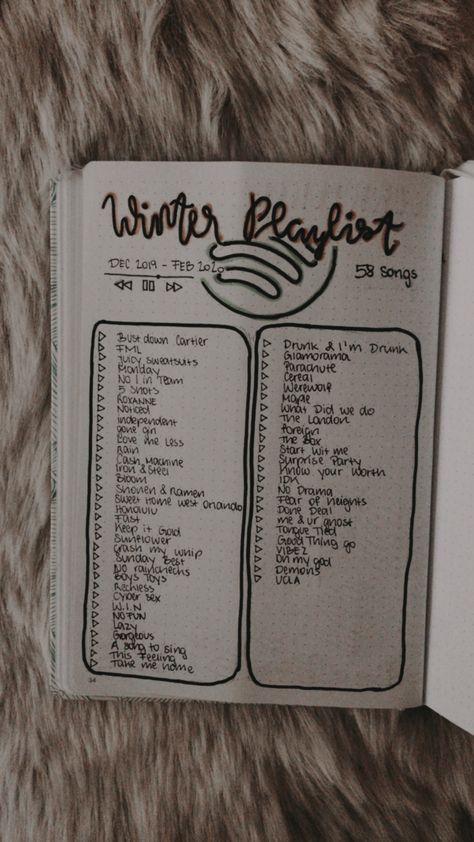 Winter Playlist
DEC 2019 - FEB 2020
58 songs
Bust down Cartier
FML
Juicy sweatsuits
Monday
No 1 in Team
5 shots
ROXANNE
Noticed
independent
gone girl
Love me Less
Rain
Cash Machine
Iron & Steel
Bloom
Shonen & Ramen
Sweet home west Orlando
Honolulu
Fast
Keep it Gold
Sunflower
Crash my whip
Sunday Best
No rainchecks
Boys Toys
Reckless
Cyber sex
W.I.N
NO FUN
Lazy
Gorgeous
A song to sing
This Feeling
Take me home
34
Drunk & I'm Drunk
Glamorama
Parachute
Cereal
Werewolf
What Did we do
The London
Foreign
The Box
Start wit me
Surprise Party
Know your worth
IDK
No Drama
Fear of heights
Done Deal
me & ur ghost
Tongue Tied
Good Thing go
VIBEZ
Oh my god
Demons
UCLA